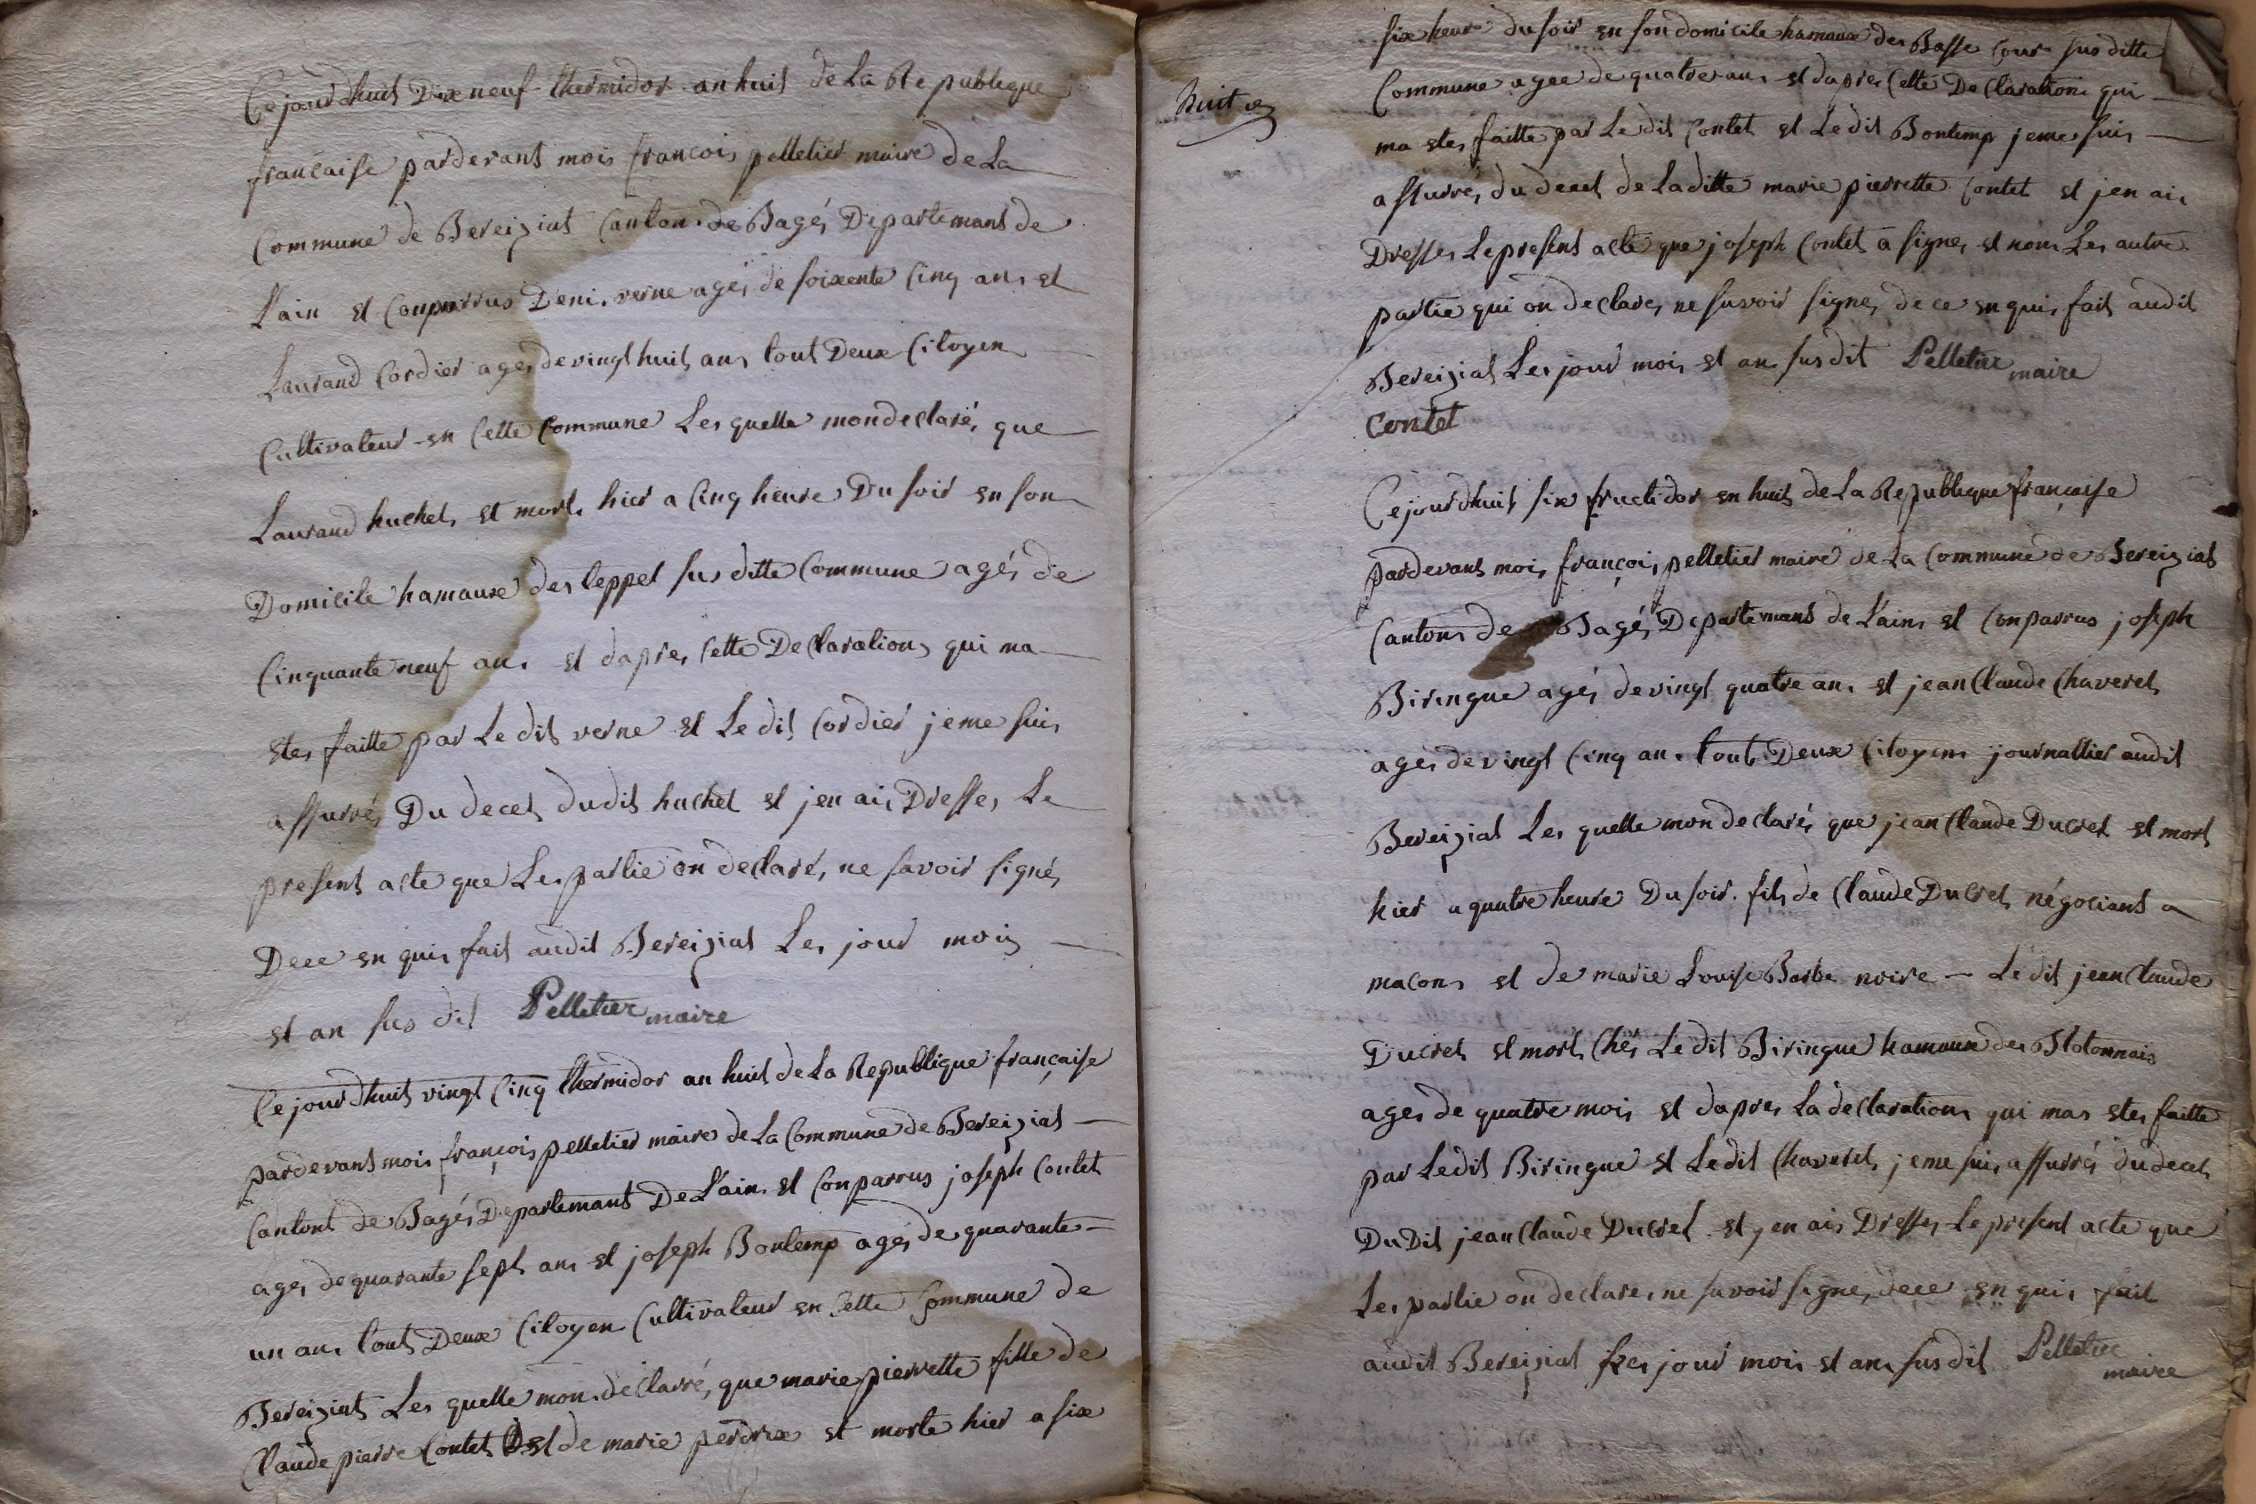 Cejourdhuit Dixneuf thermidor an huit de La Republique
francaise pardevant mois francois pelletier maire de La
Commune de Bereiziat Canton de Bagés Departemant de
L'ain et Conparrus Deni verne agés de soixente Cinq ans et
Laurand Cordier ages de vingt huit ans tout Deux Citoyen
Cultivateur en Cette Commune Les quelle mon declaré, que
Laurand huchet, et mort hier a Cinq heure Du soir en son
Domicile hamaux des teppet sus ditte Commune agés de
Cinquante neuf ans et dapres Cette Declaration qui ma
etes faitte par Le dit verne et Le dit Cordier jeme suis
assurrés Du decet dudit huchet et jen ais Dresses Le
present acte que Les partie on declaré, ne savoir signés
Dece en quis fait audit Bereiziat Les jour mois
et an sus dit Pelletier maire
Cejourdhuit vingt Cinq thermidor an huit de La Republique française
pardevant mois françois pelletier maire de La Commune de Bereiziat
Cantont de Bagés Departemant De L'ain et Conparrus joseph Contet
ages de quarante sept ans et joseph Bontemp agés de quarante
un ans tout Deux Citoyen Cultivateur en Cette Commune de
Bereiziat Les quelle mon declarré, que marie pierrette fille de
Claude pierre Contet et de marie perdrix et morte hier a six
huit
six heure du soir en son domicile hamaux des Basse Cour sus ditte
Commune agee de quatre ans et dapres Cette Declaration qui
ma etes faitte par Le dit Contet et Le dit Bontemp jeme suis
assurrés du decet de Laditte marie pierrette Contet et jen ais
Dresses Le present acte que joseph Contet a signes et nom Les autre
partie qui on declares ne savoir signes de ce en quis fait audit
Bereiziat Les jour mois et an sus dit Pelletier maire
Contet
Cejourdhuit six fructidor en huit de La Republique françaisse
pardevant mois françois pelletier maire de La Commune de Bereiziat
Canton de Bagés Departemant de L'ain et Conparrus joseph
Biringue agés de vingt quatre ans et jean Claude Chaveret
ages de vingt Cinq ans tout Deux Citoyen journallier audit
Bereiziat Les quelle mon declarés que jean Claude Ducret et mort
hier a quatre heure Du soir fils de Claude Ducret négociant a
macon et de marie Louise Barbe noire — Le dit jean Claude
Ducret et mort Chés Le dit Biringue hamaux des Blotonnais
ages de quatre mois et dapres La declaration qui mas etes faitte
par Ledit Biringue et Ledit Chaveret jeme suis assurrés du decet
Du Dit jean Claude Ducret et yen ais Dresses Le present acte que
Les partie on declares ne savoir signes dece en quis fait
audit Bereiziat Les jour mois et ans sus dit Pelletier
maire